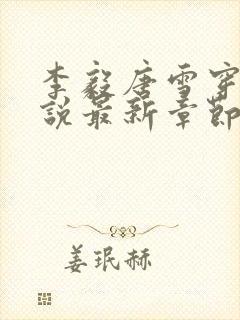 李毅唐雪穿
说最新章节
姜珉赫